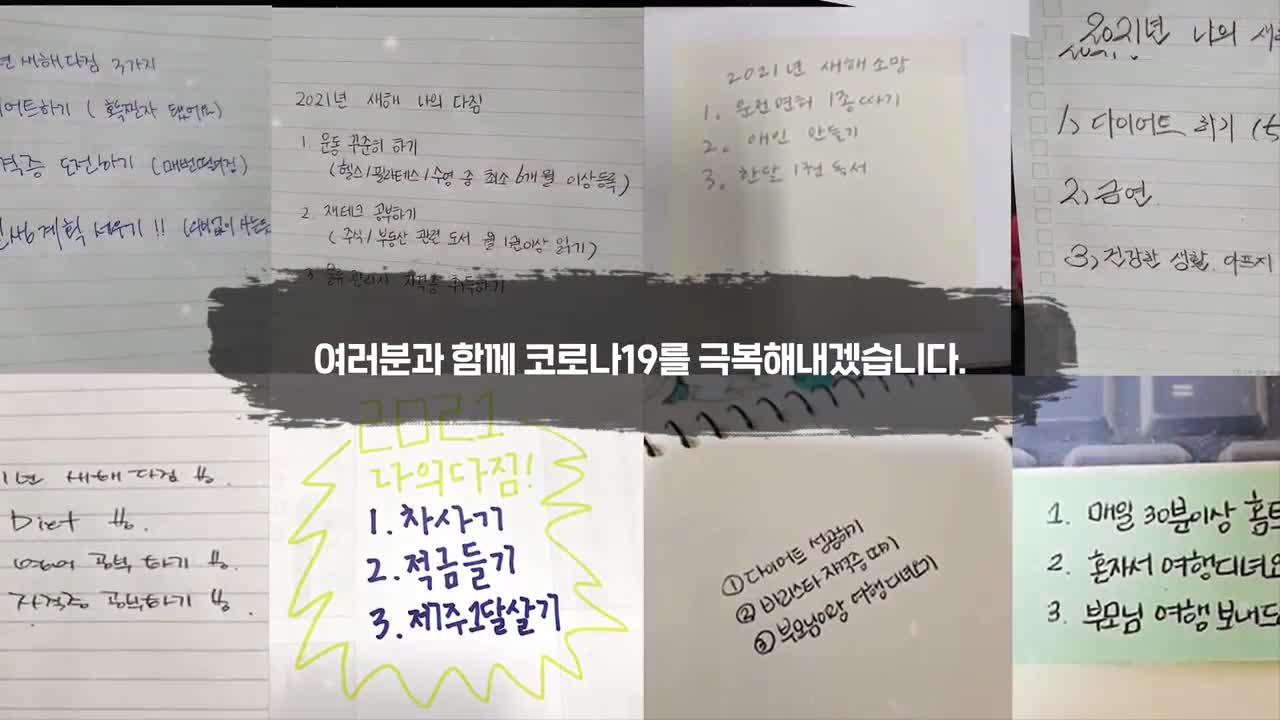 년 새해 다짐 3가지
이어트하기 ( 확찐자 됐어요)
격증 도전하기 (매번떨어짐)
계획 세우기 !!
2021년 새해 나의 다짐
1. 운동 꾸준히 하기
(헬스/필라테스/수영 중 최소 6개월 이상등록)
2. 재테크 공부하기
( 주식/부동산 관련 도서 월 1권이상 읽기)
3. 물류관리사 자격증 취득하기
2021년 새해소망
1. 운전면허 1종따기
2. 애인 만들기
3. 한달 1권 독서
2021년 나의 새해
1) 다이어트 하기
2) 금연
3) 건강한 생활. 아프지
여러분과 함께 코로나19를 극복해내겠습니다.
1년 새해 다짐
Diet
영어 공부 하기
자격증 공부하기
2021
나의다짐!
1. 차사기
2. 적금들기
3. 제주1달살기
① 다이어트 성공하기
② 바리스타 자격증 따기
③ 부모님이랑 여행다녀오기
1. 매일 30분이상 홈트
2. 혼자서 여행다녀오
3. 부모님 여행보내드